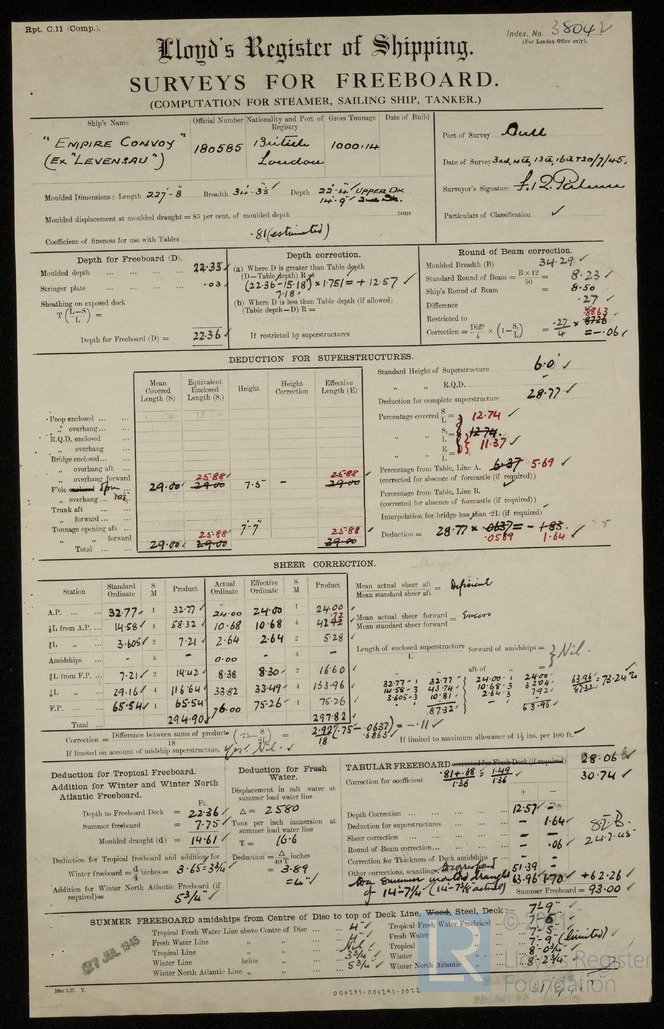 Rpt. C.11 (Comp.).
Index. No. 38042
(For London Office only).
Lloyd's Register of Shipping.
SURVEYS FOR FREEBOARD.
(COMPUTATION FOR STEAMER, SAILING SHIP, TANKER.)
Ship's Name Official Number Nationality and Port of Registry Gross Tonnage Date of Build
"EMPIRE CONVOY" 180585 British 1000.14
(Ex "LEVENSAU") London
Port of Survey Hull
Date of Survey 3rd, 4th, 13th, 16th & 20/7/45.
Surveyor's Signature
Particulars of Classification ✓
Moulded Dimensions: Length 227'-8" Breadth 34'-3½" Depth 22'-4" UPPER DK
14'-9" 2nd Dk.
Moulded displacement at moulded draught = 85 per cent. of moulded depth tons
Coefficient of fineness for use with Tables .81 (estimated)
Depth for Freeboard (D).
Moulded depth 22.33
Stringer plate .03
Sheathing on exposed deck
T (L-S/L) =
Depth for Freeboard (D) = 22.36
Depth correction.
(a) Where D is greater than Table depth
(D—Table depth) R =
(22.36-15.18) × 1.751 = + 12.57
7.18
(b) Where D is less than Table depth (if allowed)
(Table depth—D) R =
If restricted by superstructures
Round of Beam correction.
Moulded Breadth (B) 34.29
Standard Round of Beam = B × 12/50 = 8.23
Ship's Round of Beam = 8.50
Difference .27
Restricted to .8863
Correction = Diff/4 × (1 - S₁/L) = .27/4 × = -.06
DEDUCTION FOR SUPERSTRUCTURES.
Mean Covered Length (S) Equivalent Enclosed Length (S₁) Height Height Correction Effective Length (E)
Poop enclosed
" overhang
R.Q.D. enclosed
" overhang
Bridge enclosed
" overhang aft
" overhang forward 25.88 25.88
F'cle 29.00 29.00 7.5 - 29.00
" overhang
Trunk aft
" forward
Tonnage opening aft 7'-7"
" " forward 25.88 25.88
Total 29.00 29.00 29.00
Standard Height of Superstructure 6.0'
" " R.Q.D. -
Deduction for complete superstructure 28.77
Percentage covered S/L = 12.74
" " S₁/L = 12.74
" " E/L = 11.37
Percentage from Table, Line A. 6.37 5.69
(corrected for absence of forecastle (if required))
Percentage from Table, Line B.
(corrected for absence of forecastle (if required))
Interpolation for bridge less than ·2L (if required)
Deduction = 28.77 × .0637 = - 1.83
.0569 1.64
SHEER CORRECTION.
Station Standard Ordinate S M Product Actual Ordinate Effective Ordinate S M Product
A.P. 32.77 1 32.77 24.00 24.00 1 24.00
⅙L from A.P. 14.58 4 58.32 10.68 10.68 4 42.72
⅓L " 3.605 2 7.21 2.64 2.64 2 5.28
Amidships - 4 - 0.00 - 4 -
⅓L from F.P. 7.21 2 14.42 8.38 8.30 2 16.60
⅙L " 29.16 4 116.64 33.82 33.49 4 133.96
F.P. 65.54 1 65.54 76.00 75.26 1 75.26
Total 294.90 297.82
Mean actual sheer aft
Mean standard sheer aft = Deficient
Mean actual sheer forward
Mean standard sheer forward = Excess
Length of enclosed superstructure/L forward of amidships = } Nil.
" " aft of " = }
32.77-1 32.77 24.00-1 24.00
14.58-3 43.74 10.68-3 32.04
3.605-3 10.81 2.64-3 7.92
87.32 63.96
63.96/87.32 = 73.24%
Correction = Difference between sums of products/18 (·75 - S/2L) = 2.92/18 (.75 - .0637) = -.11
.6863
If limited on account of midship superstructure. Nil.
If limited to maximum allowance of 1½ ins. per 100 ft.
Deduction for Tropical Freeboard.
Addition for Winter and Winter North Atlantic Freeboard.
Ft.
Depth to Freeboard Deck = 22.36
Summer freeboard = 7.75
Moulded draught (d) = 14.61
Deduction for Tropical freeboard and addition for
Winter freeboard = d/4 inches = 3.65 = 3¾"
Addition for Winter North Atlantic Freeboard (if required) = 5¾"
Deduction for Fresh Water.
Displacement in salt water at summer load water line
Δ = 2580
Tons per inch immersion at summer load water line
T = 16.6
Deduction = Δ/40 T inches
= 3.89
= 4"
TABULAR FREEBOARD corrected for Flush Deck (if required) 28.06
Correction for coefficient .81+.68/1.36 = 1.49/1.36 30.74
+ -
Depth Correction 12.57 -
Deduction for superstructures - 1.64
Sheer correction - -
Round of Beam correction - .06
Correction for Thickness of Deck amidships - -
Other corrections, scantlings, 51.39 -
to summer moulded draught 63.96 1.70 +62.26
of 14'-7¼" (14'-7⅜ actual) Summer Freeboard = 93.00
24.7.45
SUMMER FREEBOARD amidships from Centre of Disc to top of Deck Line, Wood, Steel, Deck:— 7'-9"
Tropical Fresh Water Line above Centre of Disc 4"
Fresh Water Line " " 4"
Tropical Line " " Nil
Winter Line below " " 3¾"
Winter North Atlantic Line " " 5¾"
Tropical Fresh Water Freeboard
Fresh Water " 7'-5"
Tropical " 7'-9 (limited)
Winter " 8'-0¾"
Winter North Atlantic " 8'-2¾"
27 JUL 1945
10m.3.37. T.
006291-006291-0022
© 2021
Lloyd's Register
Foundation